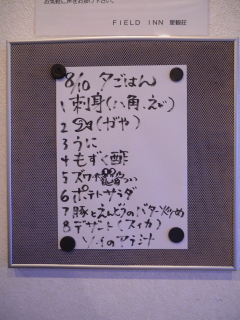 お気軽に声をお掛け下さい。
FIELD INN 星観荘
8/10 夕ごはん
1 刺身(八角、えび)
2 (ガヤ)
3 うに
4 もずく酢
5 ズワイ
6 ポテトサラダ
7 豚とえんどうのバター炒め
8 デザート(スイカ)
ソイのアラ汁